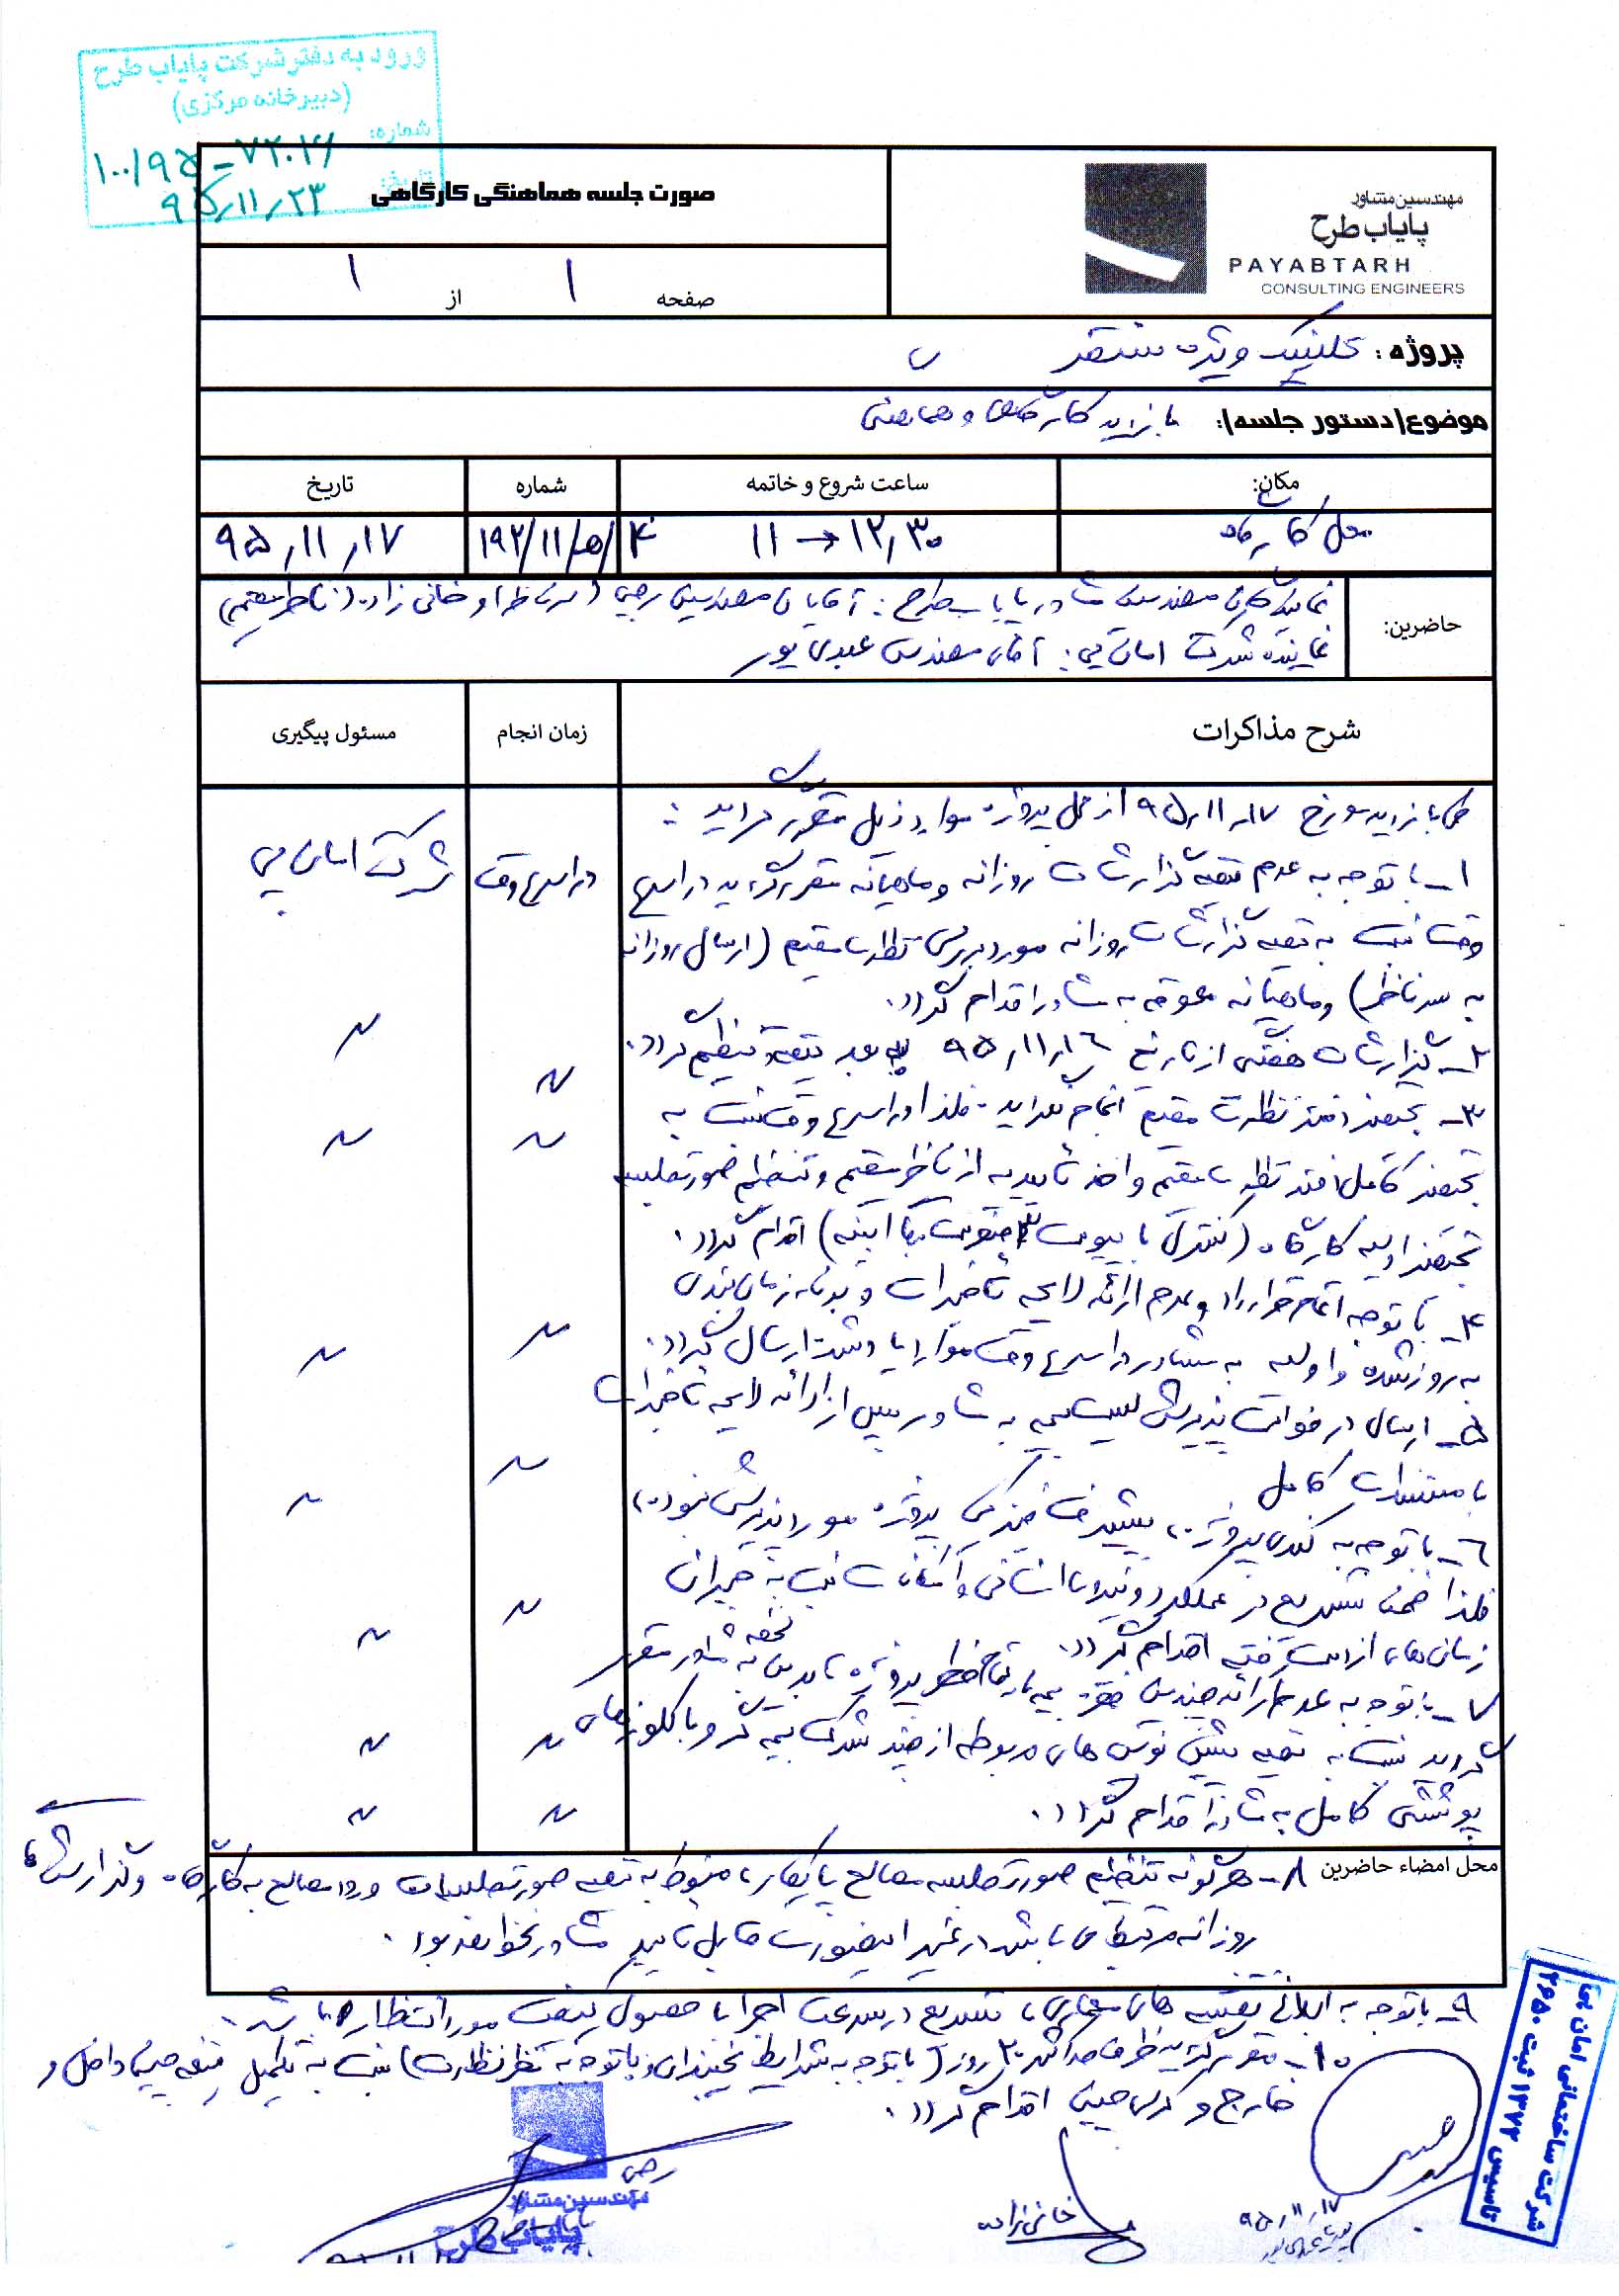 ورود به دفتر شرکت پایاب طرح
(دبیرخانه مرکزی)
شماره: ۷۲۰۲۶ - ۱۰۰/۹۵
تاریخ: ۹۵/۱۱/۲۳
مهندسین مشاور
پایاب طرح
PAYABTARH
CONSULTING ENGINEERS
صورت جلسه هماهنگی کارگاهی
صفحه ۱ از ۱
پروژه: کلینیک ویژه
موضوع/دستور جلسه/: بازدید کارگاهی و هماهنگی
مکان: ساعت شروع و خاتمه شماره تاریخ
محل کارگاه ۱۱ → ۱۲,۳۰ ۹۵,۱۱,۱۷
حاضرین: نمایندگان مهندسین مشاور پایاب طرح: آقایان مهندسین رجبی (سرناظر) و خانی زاده (ناظر مقیم)
نماینده شرکت امان پی: آقای مهندس عبدی پور
شرح مذاکرات زمان انجام مسئول پیگیری
طی بازدید مورخ ۹۵,۱۱,۱۷ از محل پروژه موارد ذیل مقرر گردید:
۱- با توجه به عدم تهیه گزارشات روزانه و ماهیانه مقرر گردید در اسرع در اسرع وقت شرکت امان پی
وقت نسبت به تهیه گزارشات روزانه مورد بررسی نظارت مقیم (ارسال روزانه
به سرناظر) و ماهیانه معوقه به مشاور اقدام گردد.
۲- گزارشات هفتگی از تاریخ ۹۵,۱۱,۱۶ به بعد تهیه و تنظیم گردد.
۳- تجهیز دفتر نظارت مقیم انجام نگردیده. فلذا در اسرع وقت نسبت به
تجهیز کامل دفتر نظارت مقیم و اخذ تاییدیه از ناظر مقیم و تنظیم صورتجلسه
تجهیز اولیه کارگاه (کنترل با پیوست ابنیه) اقدام گردد.
۴- با توجه اتمام قرارداد و عدم ارائه لایحه تاخیرات و برنامه زمانبندی
به روز شده و اولیه به مشاور در اسرع وقت موارد یاد شده ارسال گردد.
۵- ارسال درخواست پذیرش لیست بیمه به مشاور پس از ارائه لایحه تاخیرات
با مستندات کامل
۶- با توجه به کندی پروژه، پیشرفت فیزیکی پروژه مورد پذیرش نبوده،
فلذا ضمن تسریع در عملکرد و نیروی انسانی و امکانات نسبت به جبران
زمان های از دست رفته اقدام گردد.
۷- با توجه به عدم ارائه چندین فقره بیمه تمام خطر پروژه تا بدین لحظه به مشاور مقرر
گردید نسبت به تهیه پیش نویس های مربوطه از چند شرکت بیمه گر و با کلوزهای
پوششی کامل به مشاور اقدام گردد.
محل امضاء حاضرین ۸- هرگونه تنظیم صورتجلسه مصالح پایکار، منوط به تهیه صورتجلسات ورود مصالح به کارگاه و گزارشات
روزانه مرتبط می باشد در غیر اینصورت قابل تایید مشاور نخواهد بود.
۹- با توجه به ابلاغ نقشه های معماری، تسریع در سرعت اجرا با حصول کیفیت مورد انتظار می باشد.
۱۰- مقرر گردید ظرف حداکثر ۲۰ روز (با توجه به شرایط یخبندان و با توجه به نظر نظارت) نسبت به تکمیل تیغه چینی داخل و
خارج و کرسی چینی اقدام گردد.
شرکت ساختمانی امان پی
تاسیس ۱۳۷۲ ثبت ۲۶۵۰
۹۵,۱۱,۱۷
خانی زاده
رجبی
مهندسین مشاور
پایاب طرح